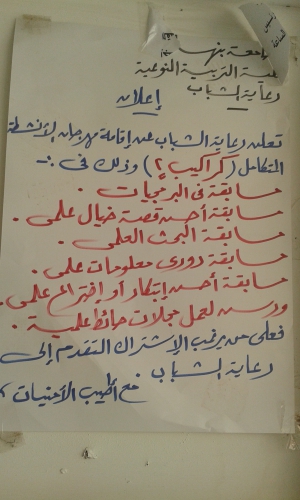 جامعة بنها
كلية التربية النوعية
رعاية الشباب
إعلان
تعلن رعاية الشباب عن إقامة مهرجان الأنشطة
المتكامل (كراكيب ٢) وذلك فى :-
مسابقة فى البرمجيات .
مسابقة أحسن قصة خيال علمى .
مسابقة البحث العلمى .
مسابقة دورى معلومات علمى .
مسابقة أحسن إبتكار أو إختراع علمى .
ورسى لعمل مجلات حائط علمية .
فعلى من يرغب الإشتراك التقدم إلى
رعاية الشباب .
مع أطيب الأمنيات